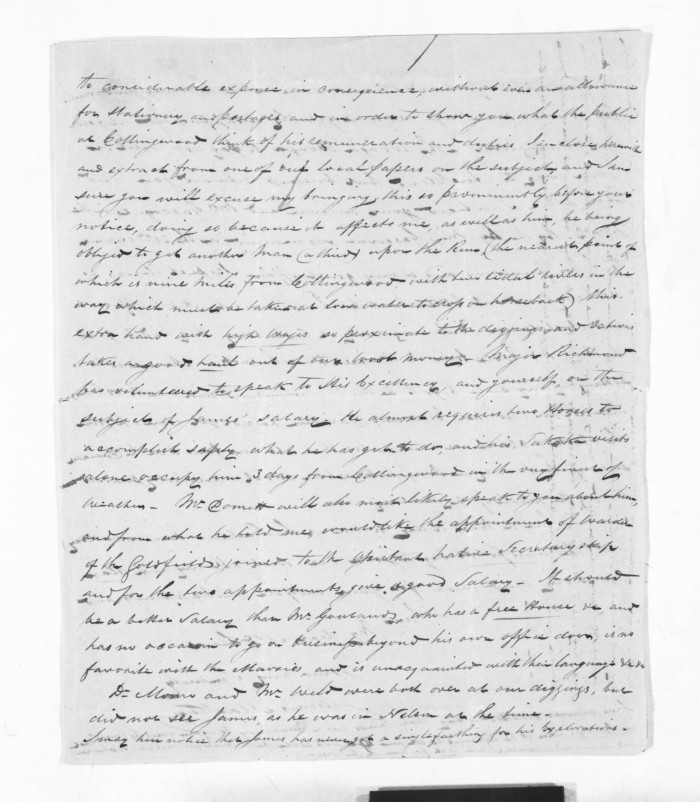 to considerable expence in consequence, without even an allowance
for stationery and postages, and in order to show you what the public
at Collingwood think of his remuneration and duties I inclose herewith
and extract from one of our local papers on the subject, and I am
sure you will excuse my bringing this so prominently before your
notice, doing so because it affects me, as well as him, he being
obliged to get another man (a third) upon the Run (the nearest point of
which is nine miles from Collingwood with two tidal rivers in the
way which must be taken at low water to cross on horseback) this
extra hand with high wages so proximate to the diggings and
takes a good haul out of our money. Major Richmond
has volunteered to speak to His Excellency, and yourself, on the
subject of James' salary. He almost requires two Horses to
accomplish safely what he has got to do, and his visits
alone occupy him 3 days from Collingwood in the very finest of
weather. Mr will also most likely speak to you about him,
and from what he told me, would like the appointment of Warden
of the Goldfields joined to the Assistant native Secretaryship
and for the two appointments, give a good Salary. It should
be a better Salary than Mr who has a free House &c and
has no occasion to go on business beyond his own office door, is no
favorite with the Maories, and is unacquainted with their language &c &c
Dr Monro and Mr Weld were both over at our diggings, but
did not see James, as he was in Nelson at the time.
I may here notice that James has never got a single farthing for his explorations.